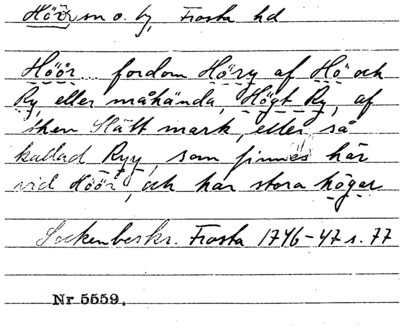 Höör sn o. by, Frosta hd
Höör... fordom Höry af Hö och
Ry, eller måhända, Högt Ry, af
then Slätt mark, eller så
kallad Ryy, som finnes här
vid Höör, och har stora högar
Sockenbeskr. Frosta 1746-47 s. 77
Nr 5559.